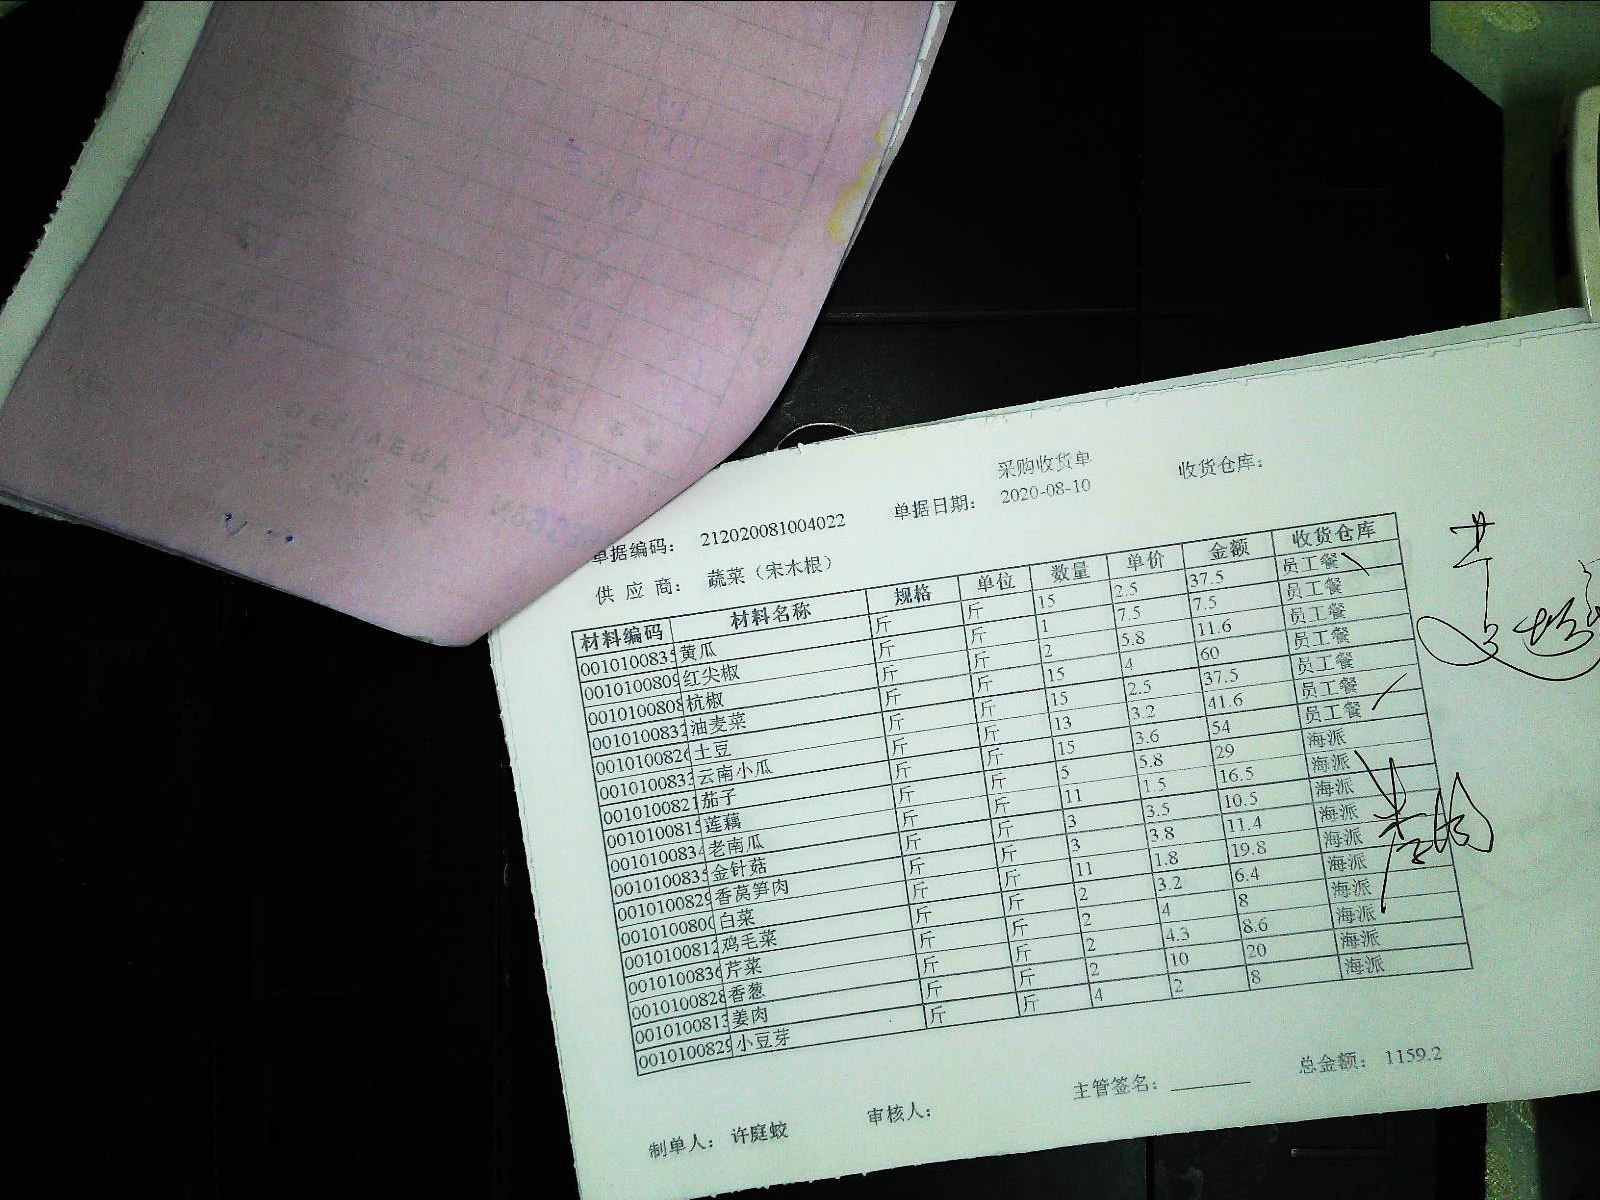 采购收货单
单据编码： 212020081004022 单据日期： 2020-08-10 收货仓库：
供 应 商： 蔬菜（宋木根）
材料编码 材料名称 规格 单位 数量 单价 金额 收货仓库
0010100835 黄瓜 斤 斤 15 2.5 37.5 员工餐
0010100809 红尖椒 斤 斤 1 7.5 7.5 员工餐
0010100808 杭椒 斤 斤 2 5.8 11.6 员工餐
0010100832 油麦菜 斤 斤 15 4 60 员工餐
0010100826 土豆 斤 斤 15 2.5 37.5 员工餐
0010100833 云南小瓜 斤 斤 13 3.2 41.6 员工餐
0010100821 茄子 斤 斤 15 3.6 54 员工餐
0010100815 莲藕 斤 斤 5 5.8 29 海派
0010100834 老南瓜 斤 斤 11 1.5 16.5 海派
0010100835 金针菇 斤 斤 3 3.5 10.5 海派
0010100829 香莴笋肉 斤 斤 3 3.8 11.4 海派
0010100800 白菜 斤 斤 11 1.8 19.8 海派
0010100812 鸡毛菜 斤 斤 2 3.2 6.4 海派
0010100836 芹菜 斤 斤 2 4 8 海派
0010100828 香葱 斤 斤 2 4.3 8.6 海派
0010100813 姜肉 斤 斤 2 10 20 海派
0010100829 小豆芽 斤 斤 4 2 8 海派
总金额： 1159.2
制单人： 许庭蛟 审核人： 主管签名：